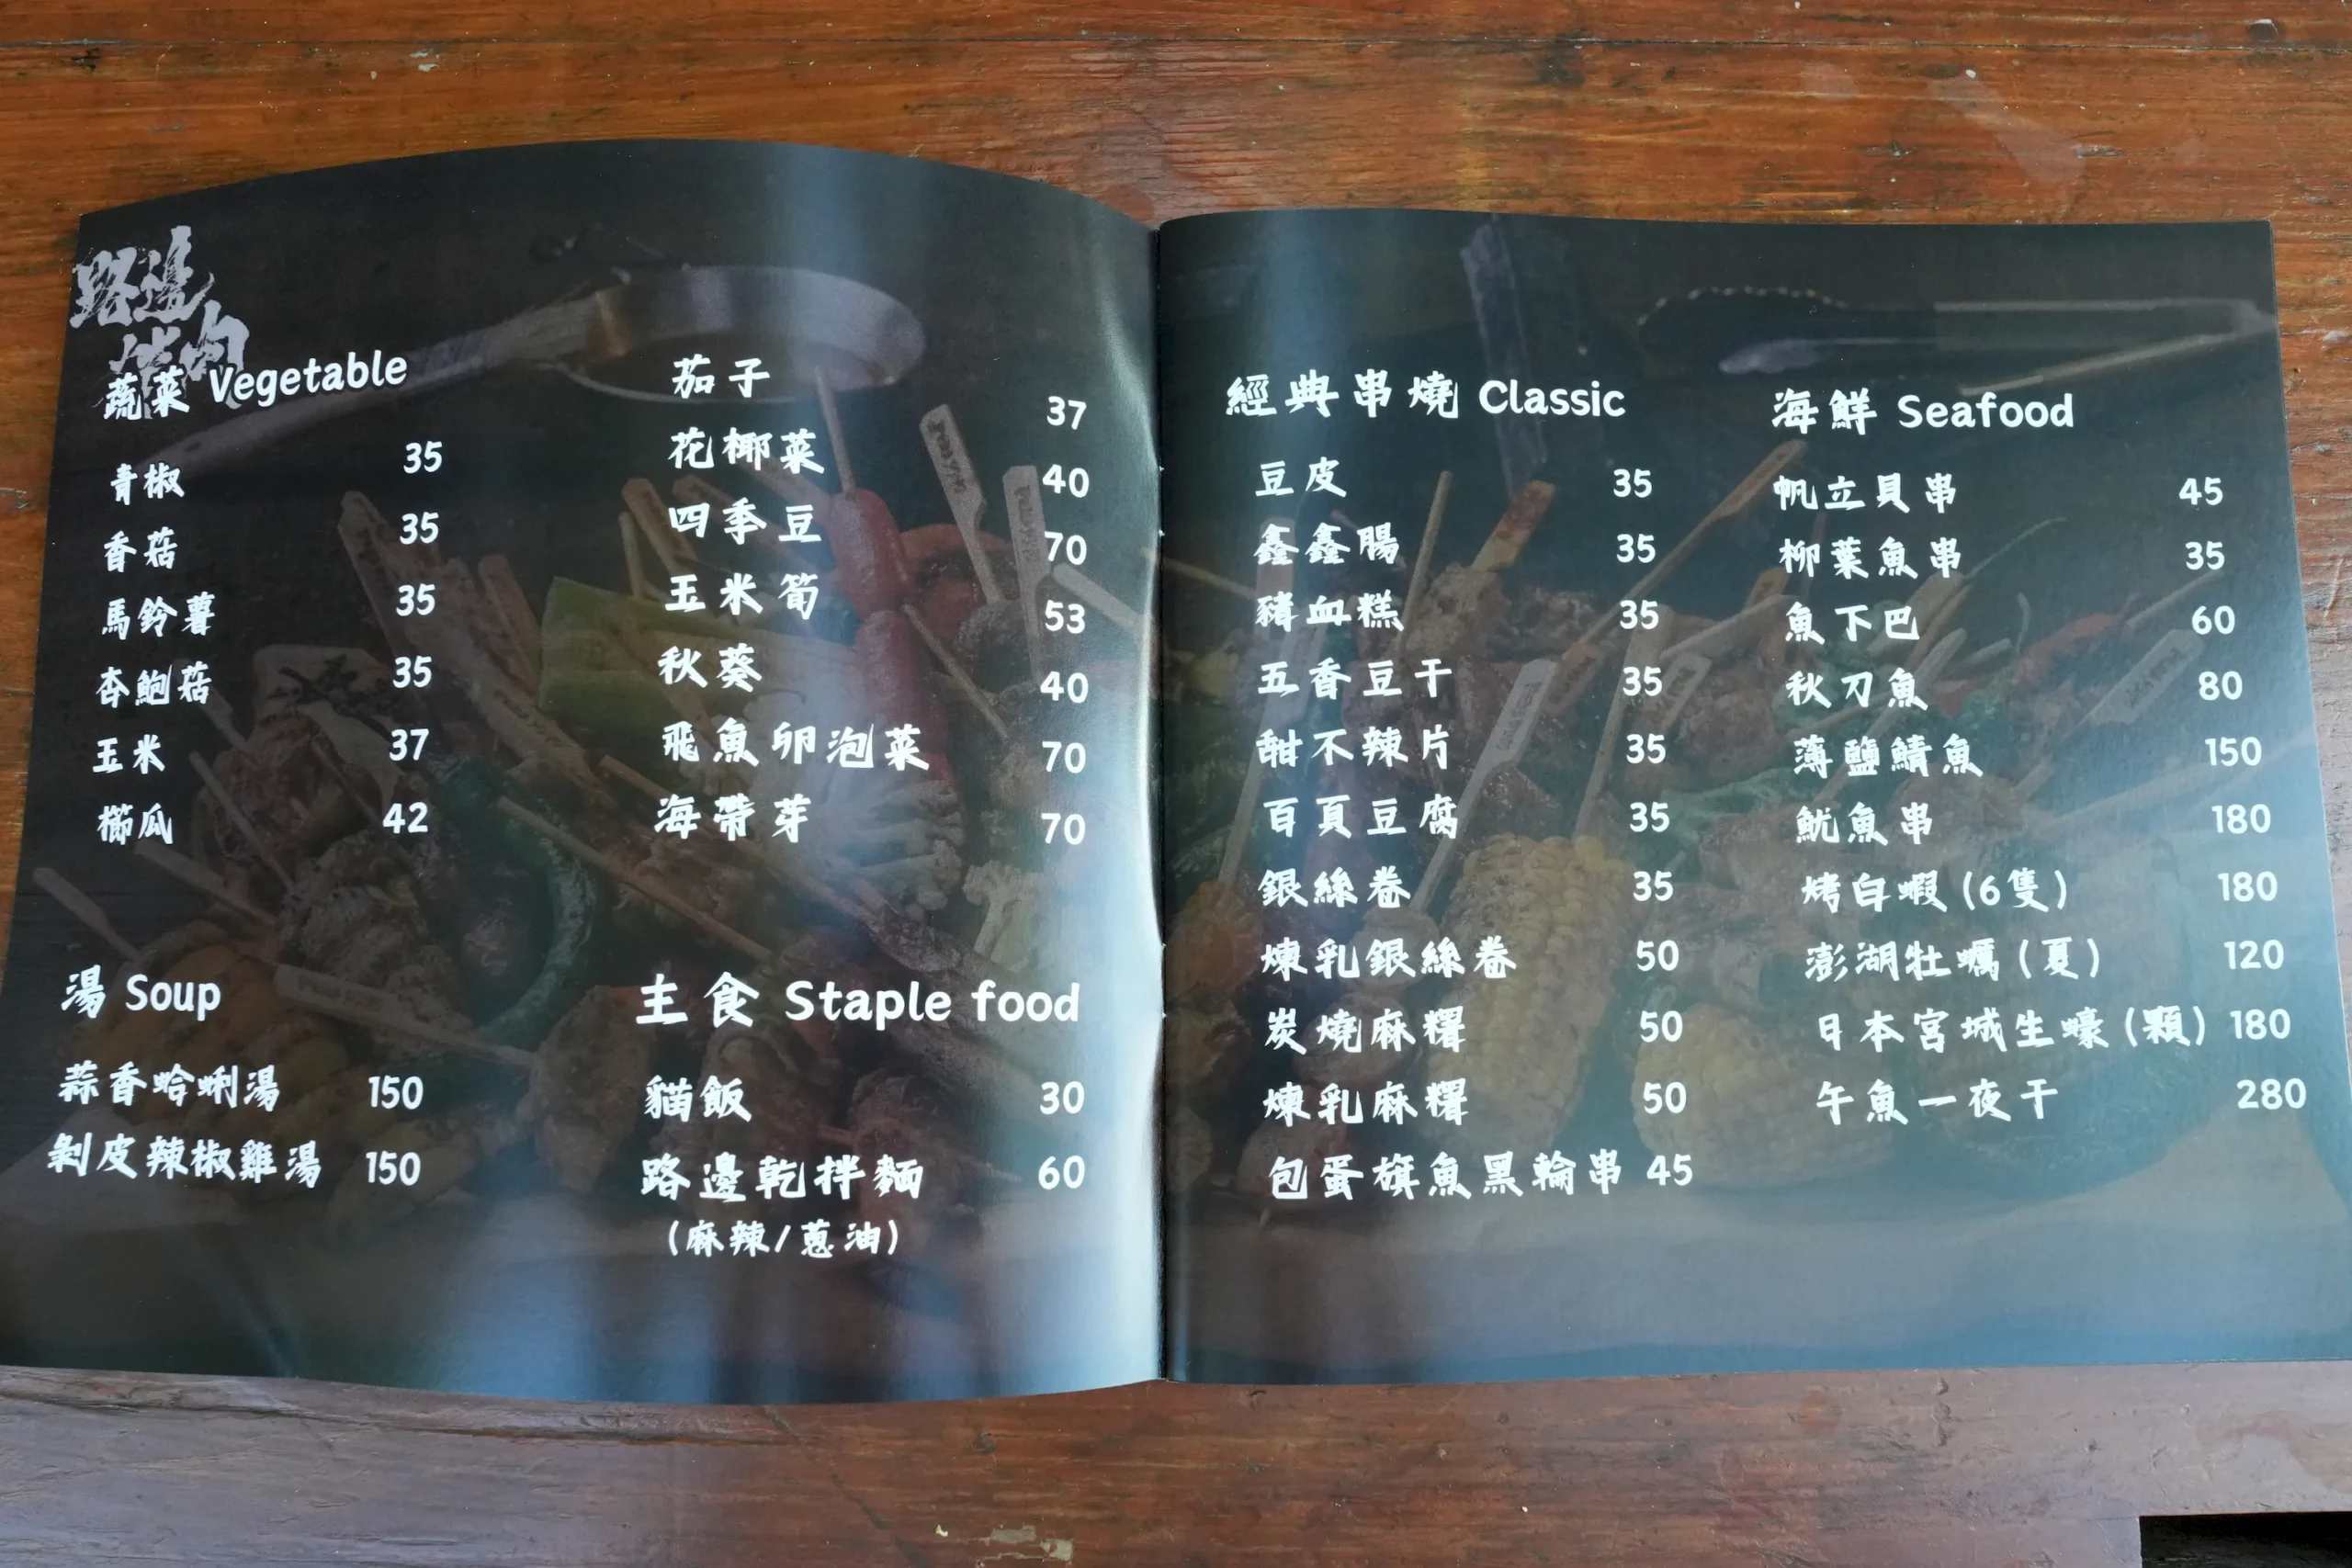 路邊
烤肉
蔬菜 Vegetable
青椒 35
香菇 35
馬鈴薯 35
杏鮑菇 35
玉米 37
櫛瓜 42
茄子 37
花椰菜 40
四季豆 70
玉米筍 53
秋葵 40
飛魚卵泡菜 70
海帶芽 70
湯 Soup
蒜香蛤蜊湯 150
剝皮辣椒雞湯 150
主食 Staple food
貓飯 30
路邊乾拌麵 60
(麻辣/蔥油)
經典串燒 Classic
豆皮 35
鑫鑫腸 35
豬血糕 35
五香豆干 35
甜不辣片 35
百頁豆腐 35
銀絲卷 35
煉乳銀絲卷 50
炭燒麻糬 50
煉乳麻糬 50
包蛋旗魚黑輪串 45
海鮮 Seafood
帆立貝串 45
柳葉魚串 35
魚下巴 60
秋刀魚 80
薄鹽鯖魚 150
魷魚串 180
烤白蝦(6隻) 180
澎湖牡蠣(夏) 120
日本宮城生蠔(顆) 180
午魚一夜干 280